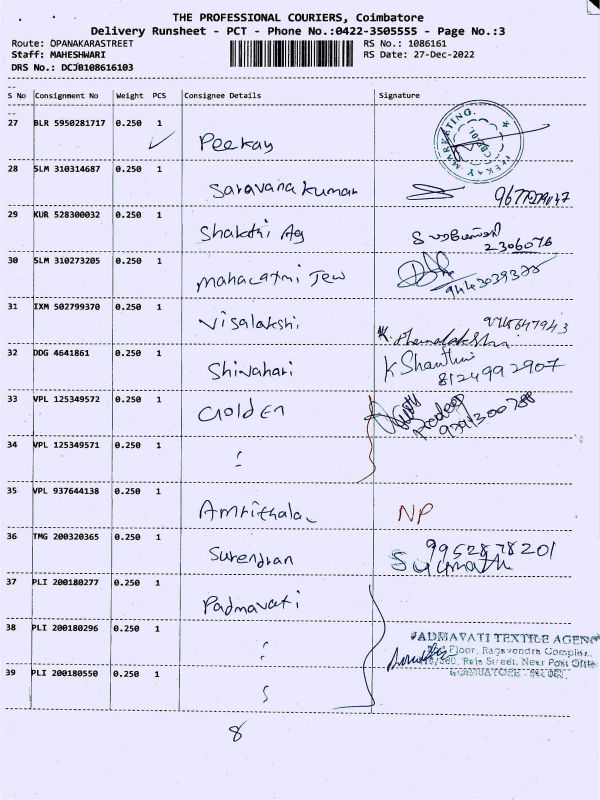 THE PROFESSIONAL COURIERS, Coimbatore
Delivery Runsheet - PCT - Phone No.:0422-3505555 - Page No.:3
Route: OPANAKARASTREET RS No.: 1086161
Staff: MAHESHWARI RS Date: 27-Dec-2022
DRS No.: DCJB108616103
S No Consignment No Weight PCS Consignee Details Signature
27 BLR 5950281717 0.250 1 Peekay
MARKETING. PEEKAY
28 SLM 310314687 0.250 1 Saravana kumar
29 KUR 528300032 0.250 1 Shakthi Ag
2306076
30 SLM 310273205 0.250 1 mahalaxmi Jew
31 IXM 502799370 0.250 1 Visalakshi
32 DDG 4641861 0.250 1 Shivahari K Shanthi
8124992907
33 VPL 125349572 0.250 1 Golden Pradeep
34 VPL 125349571 0.250 1
35 VPL 937644138 0.250 1 NP
36 TMG 200320365 0.250 1 Surendran 9952878201
37 PLI 200180277 0.250 1 Padmavati
38 PLI 200180296 0.250 1 PADMAVATI TEXTILE AGENC
Floor, Ragavendra Complex,
Raja Street, Near Post Office
39 PLI 200180550 0.250 1 COIMBATORE
8